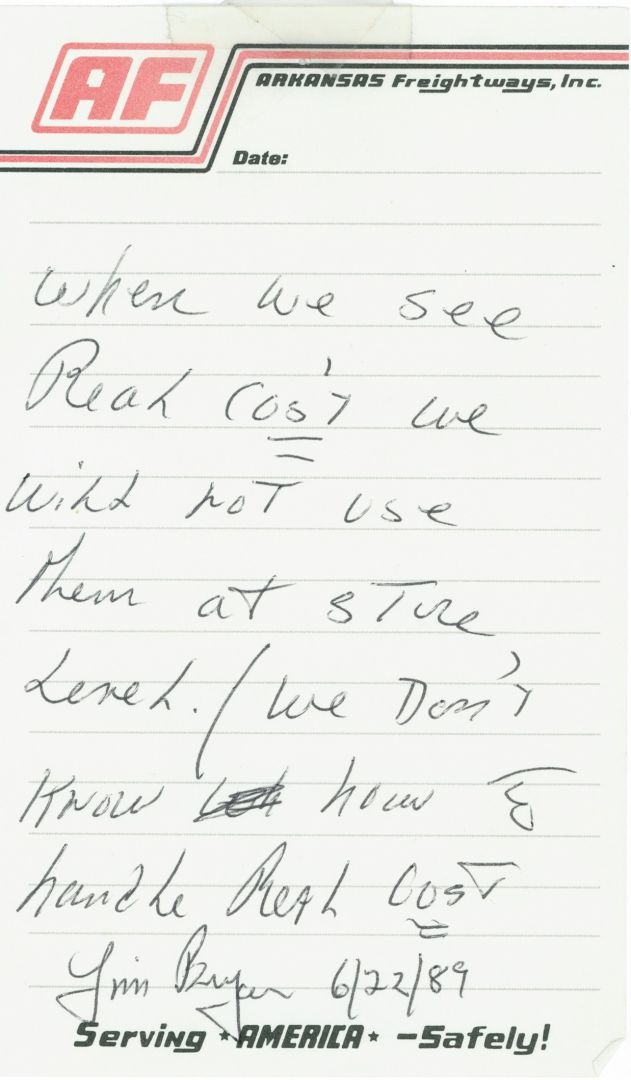 AF
ARKANSAS Freightways, Inc.
Date:
When we see
Real Cos't we
will not use
them at store
Level. / We Don't
Know how to
handle Real Cost
Jim Bryan 6/22/89
Serving * AMERICA * - Safely!